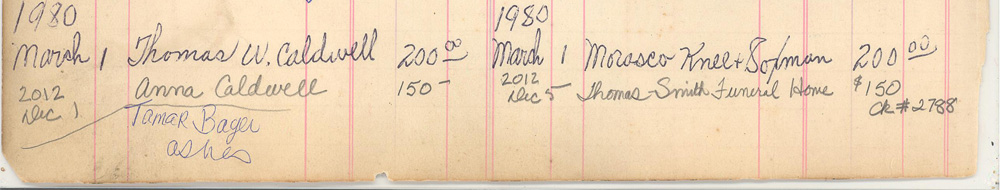 1980
March 1 Thomas W. Caldwell 200 00
2012 Dec 1 Anna Caldwell 150 -
Tamar Bager
ashes
1980
March 1 Morasco 200 00
2012 Dec 5 Thomas-Smith Funeral Home $150
CK #2788